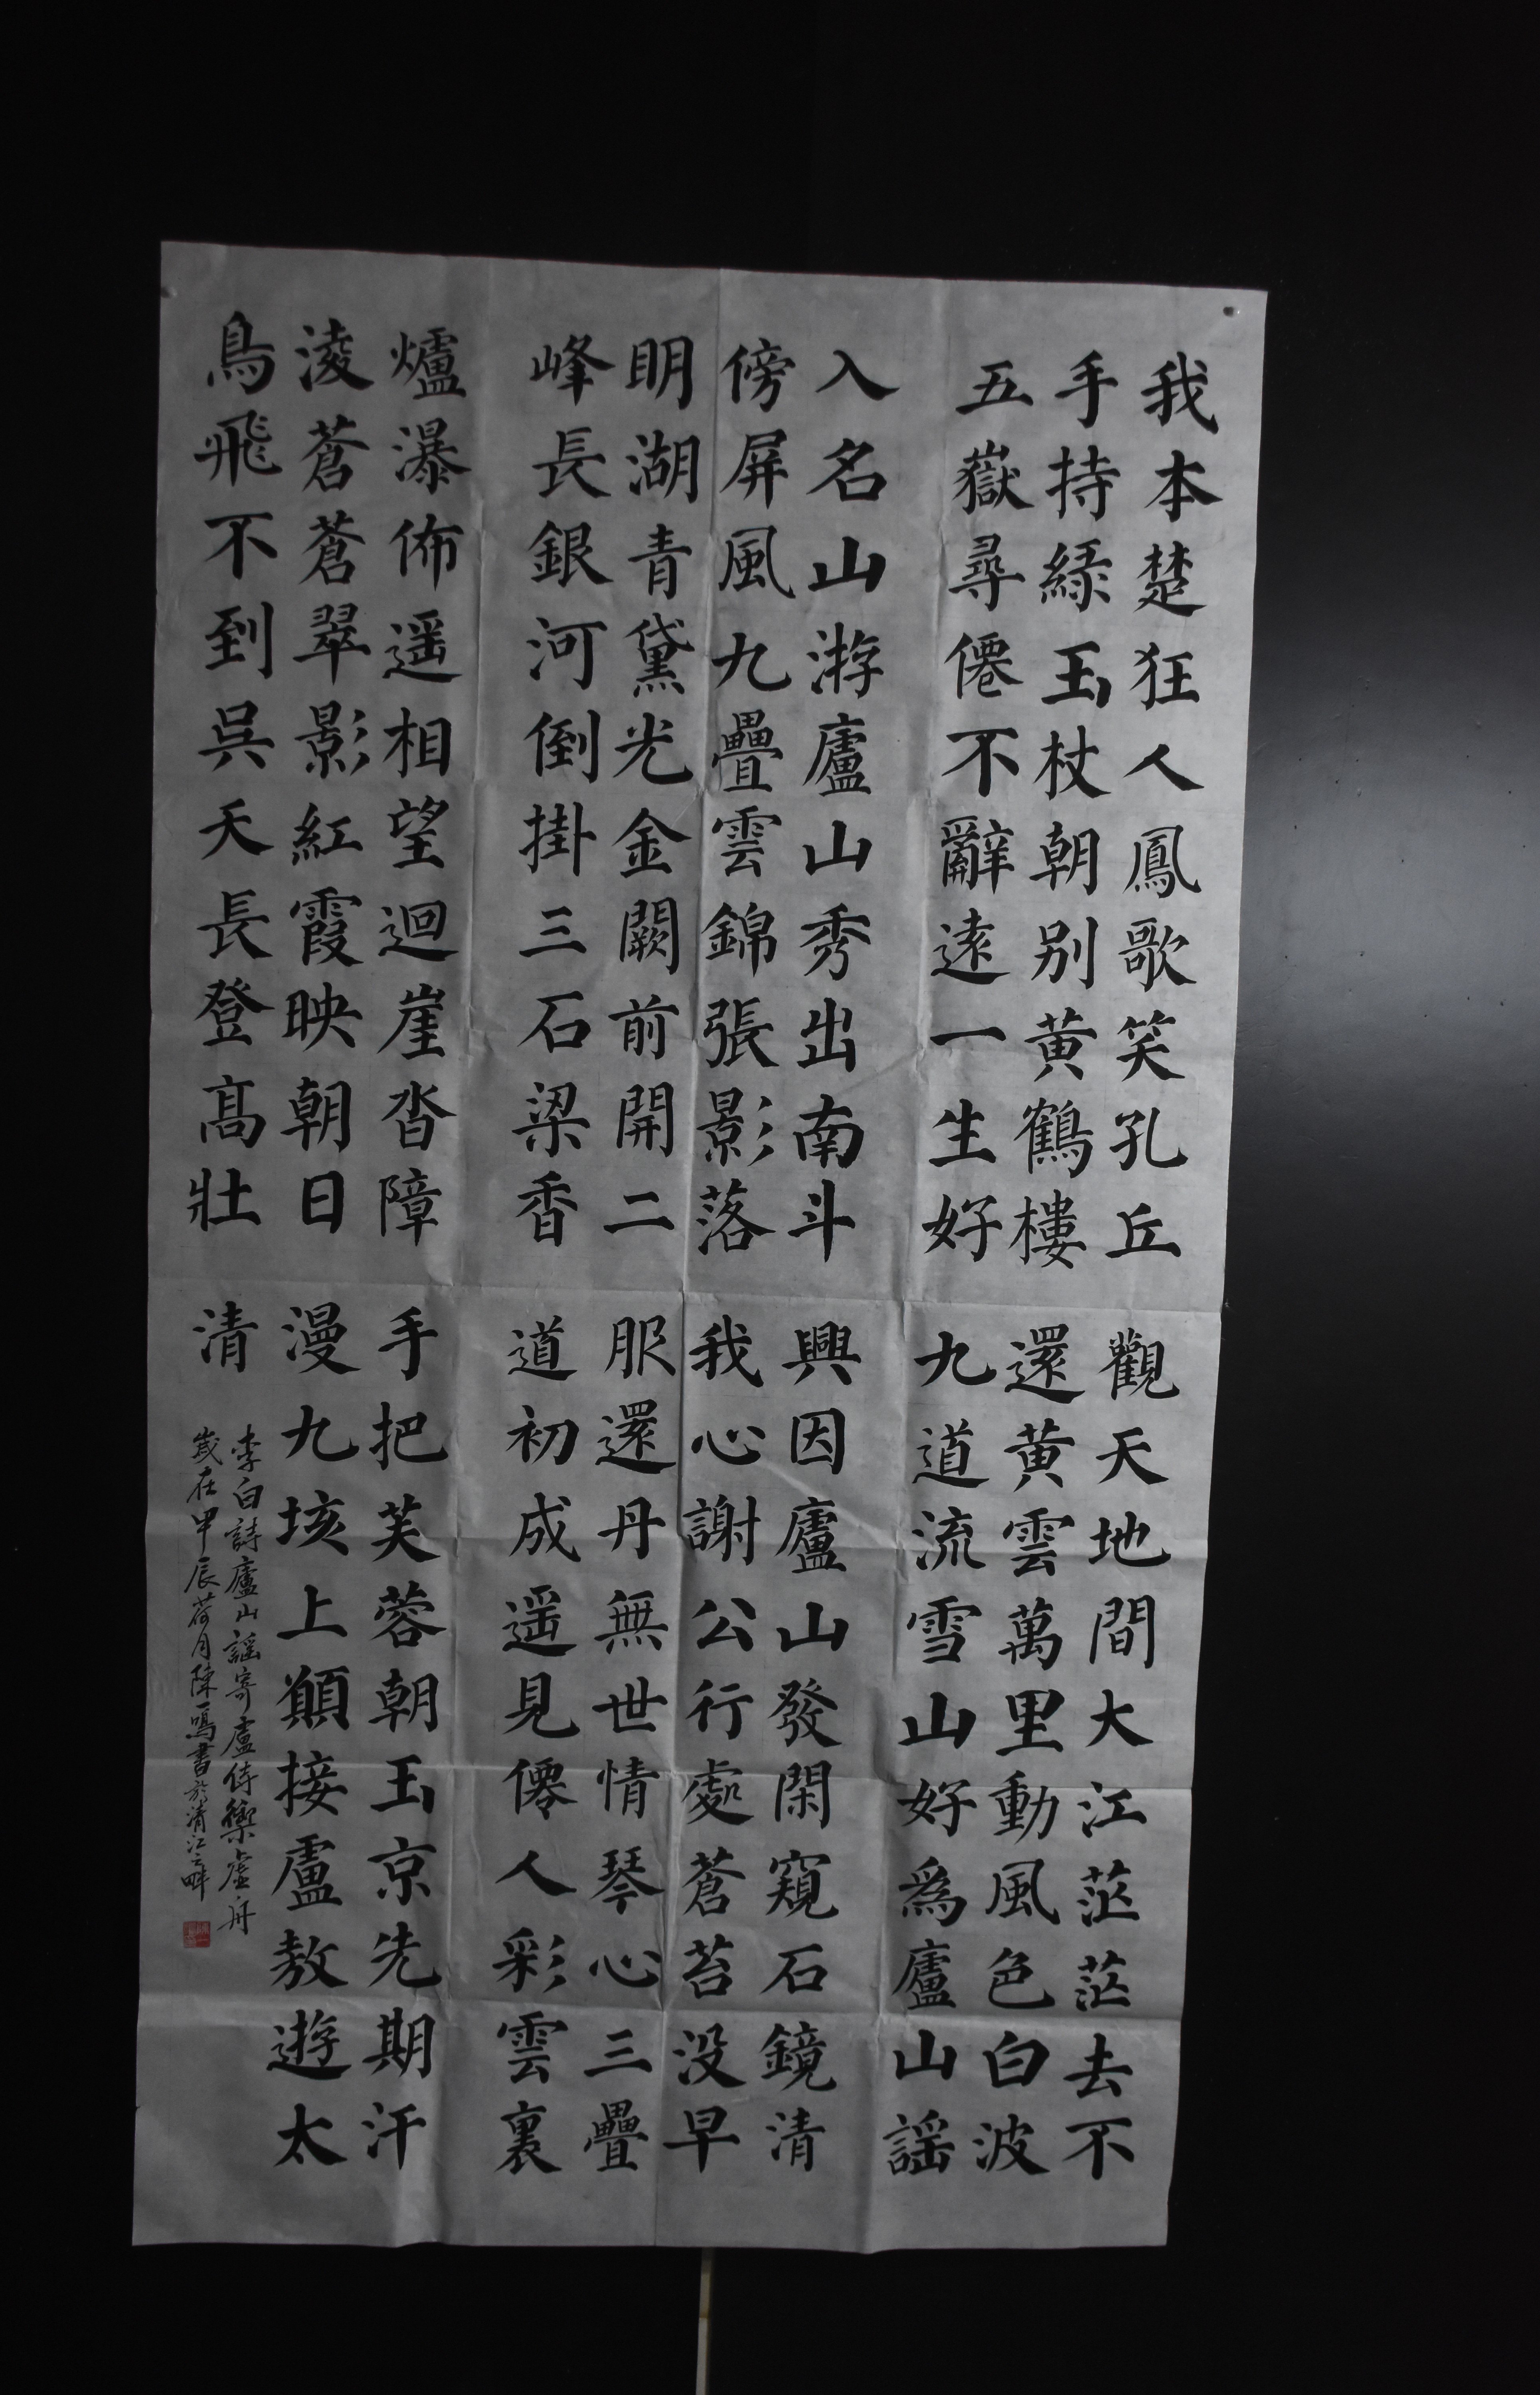 我本楚狂人鳳歌笑孔丘
手持緑玉杖朝别黄鶴樓
五嶽尋僊不辭遠一生好
入名山游廬山秀出南斗
傍屏風九疊雲錦張影落
明湖青黛光金闕前開二
峰長銀河倒掛三石梁香
爐瀑佈遥相望迴崖沓障
淩蒼蒼翠影紅霞映朝日
鳥飛不到吳天長登高壯
觀天地間大江茫茫去不
還黄雲萬里動風色白波
九道流雪山好為廬山謡
興因廬山發閑窺石鏡清
我心謝公行處蒼苔没早
服還丹無世情琴心三疊
道初成遥見僊人彩雲裏
手把芙蓉朝玉京先期汗
漫九垓上願接盧敖遊太
清
李白詩廬山謡寄盧侍御虚舟
歲在甲辰荷月陳一鳴書於清江之畔